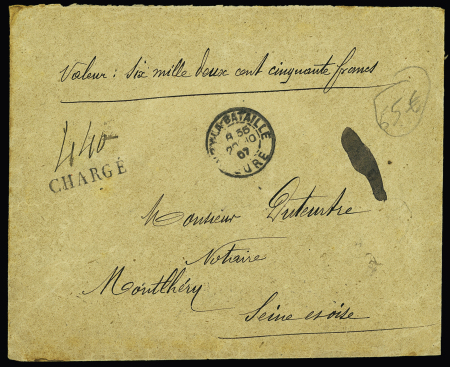 Valeur : six mille deux cent cinquante francs
440
CHARGÉ
LA-BATAILLE
8 35
07
EURE
Monsieur Duteurtre
Notaire
Montlhéry
Seine et oise